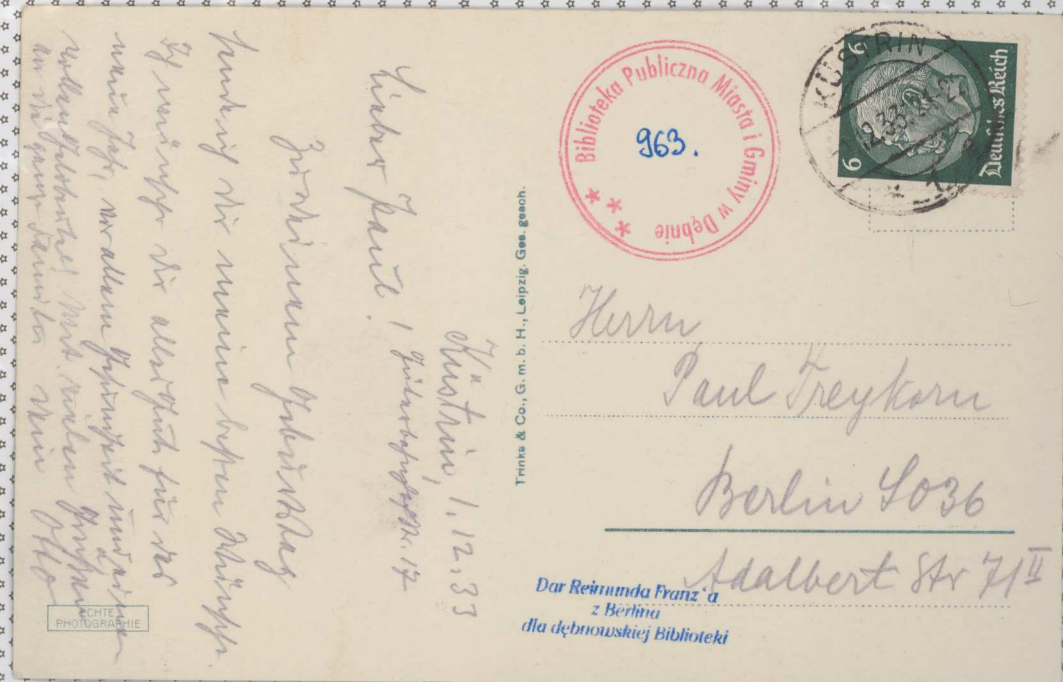 Küstrin, 1.12.33
Lieber Paul!
Zu deinem Geburtstag
sende ich dir meine besten Wünsche.
Ich wünsche dir alles Gute für das
neue Jahr, vor allem Gesundheit und einen
Mit vielen Grüßen
an die ganze Familie dein Otto
ECHTE
PHOTOGRAPHIE
Trinks & Co., G. m. b. H., Leipzig. Ges. gesch.
Biblioteka Publiczna Miasta i Gminy w Dębnie
963.
KÜSTRIN
6 6
Deutsches Reich
Herrn
Paul Freykorn
Berlin SO36
Adalbert Str 71 II
Dar Reimunda Franz'a
z Berlina
dla dębnowskiej Biblioteki